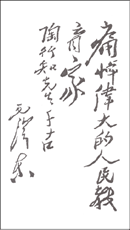 痛悼偉大的人民教
育家
陶行知先生千古
毛澤東